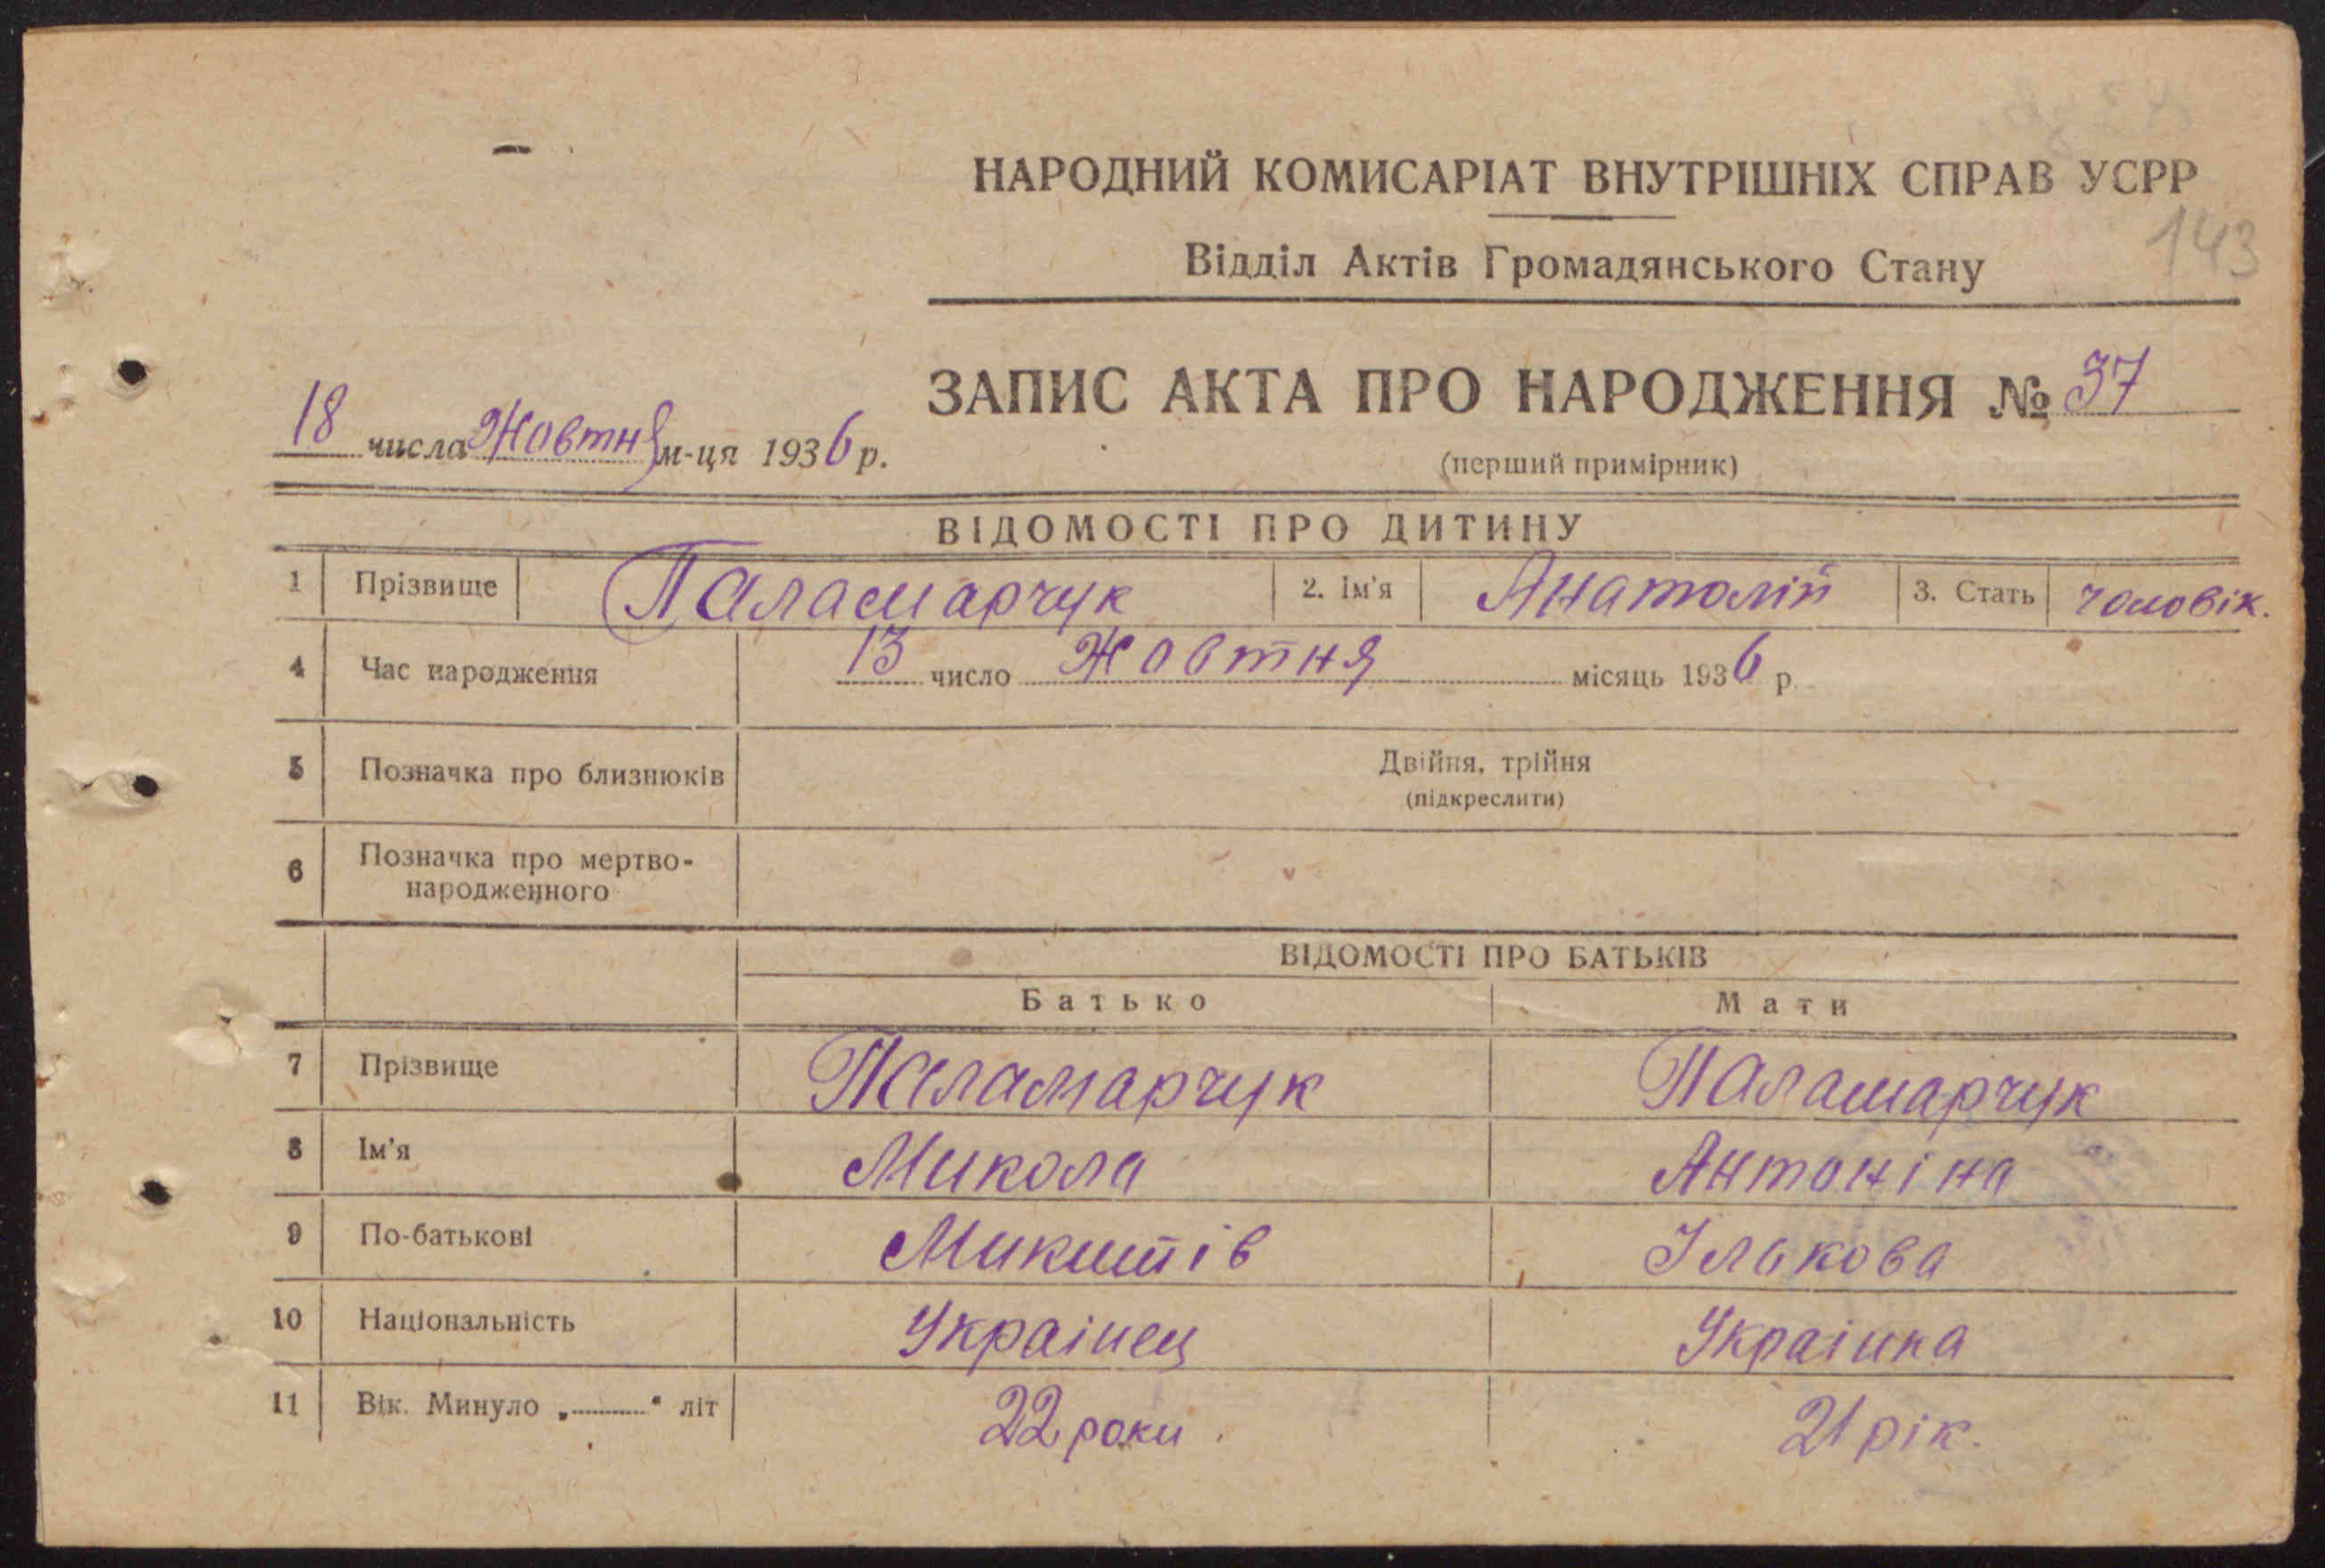 НАРОДНИЙ КОМИСАРІАТ ВНУТРІШНІХ СПРАВ УСРР
143
Відділ Актів Громадянського Стану
ЗАПИС АКТА ПРО НАРОДЖЕННЯ № 37
18 числа Жовтня м-ця 1936 р.
(перший примірник)
ВІДОМОСТІ ПРО ДИТИНУ
1 Прізвище Паламарчук 2. Ім'я Анатолій 3. Стать чоловік.
4 Час народження 13 число Жовтня місяць 1936 р.
5 Позначка про близнюків Двійня, трійня
(підкреслити)
6 Позначка про мертво-
народженного
ВІДОМОСТІ ПРО БАТЬКІВ
Батько Мати
7 Прізвище Паламарчук Паламарчук
8 Ім'я Микола Антоніна
9 По-батькові Микитів Ілакова
10 Національність Украінец Украінка
11 Вік. Минуло „..........“ літ 22 роки. 21 рік.